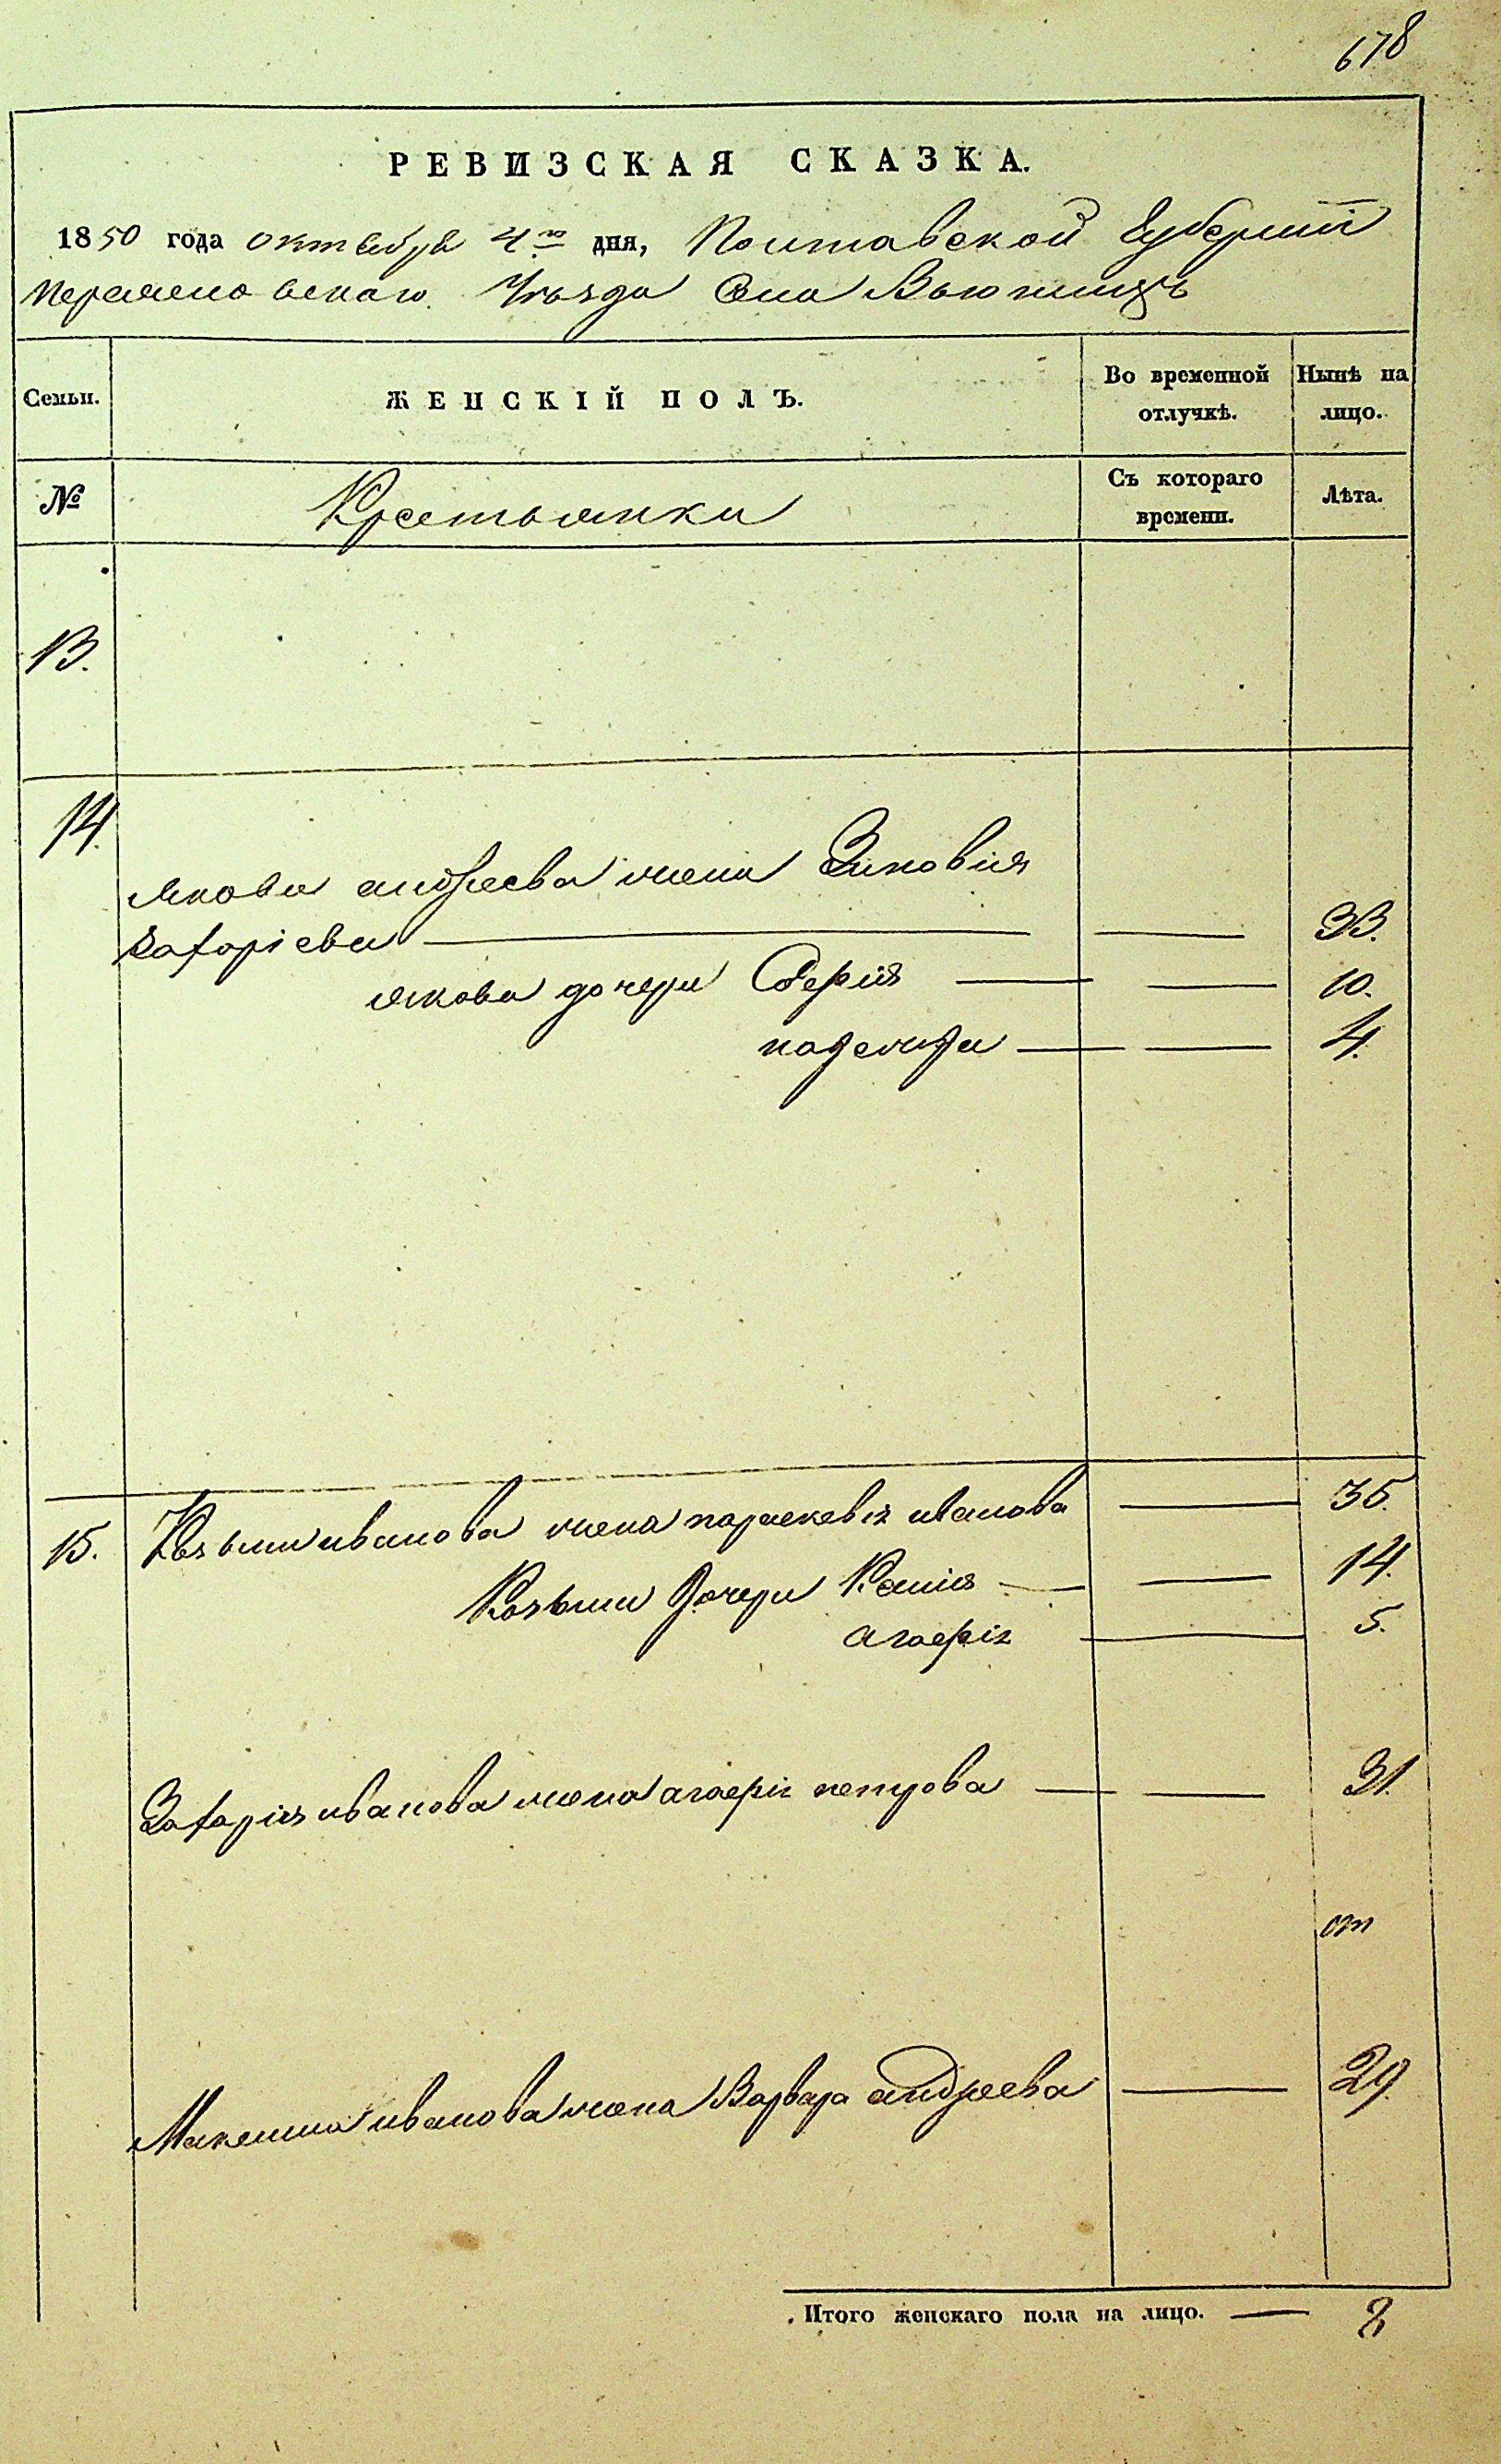 678
РЕВИЗСКАЯ СКАЗКА.
1850 года октября 4го дня, Полтавской Губерніи
Переяславскаго Уѣзда Села Вьюнищъ
Семьи.
ЖЕНСКІЙ ПОЛЪ.
Во временной отлучкѣ.
Нынѣ на лицо.
№
Крестьянки
Съ котораго времени.
Лѣта.
13.
14.
Якова андреева жена Зиновія
Захаріева 33.
Якова дочери 10.
4.
15. Козьми иванова жена параскевія иванова 35.
Козьми дочери Ксенія 14.
агафія 5.
Захарія иванова жена агафія петрова 31.
Максима иванова жена Варвара андреева 29.
Итого женскаго пола на лицо. 8